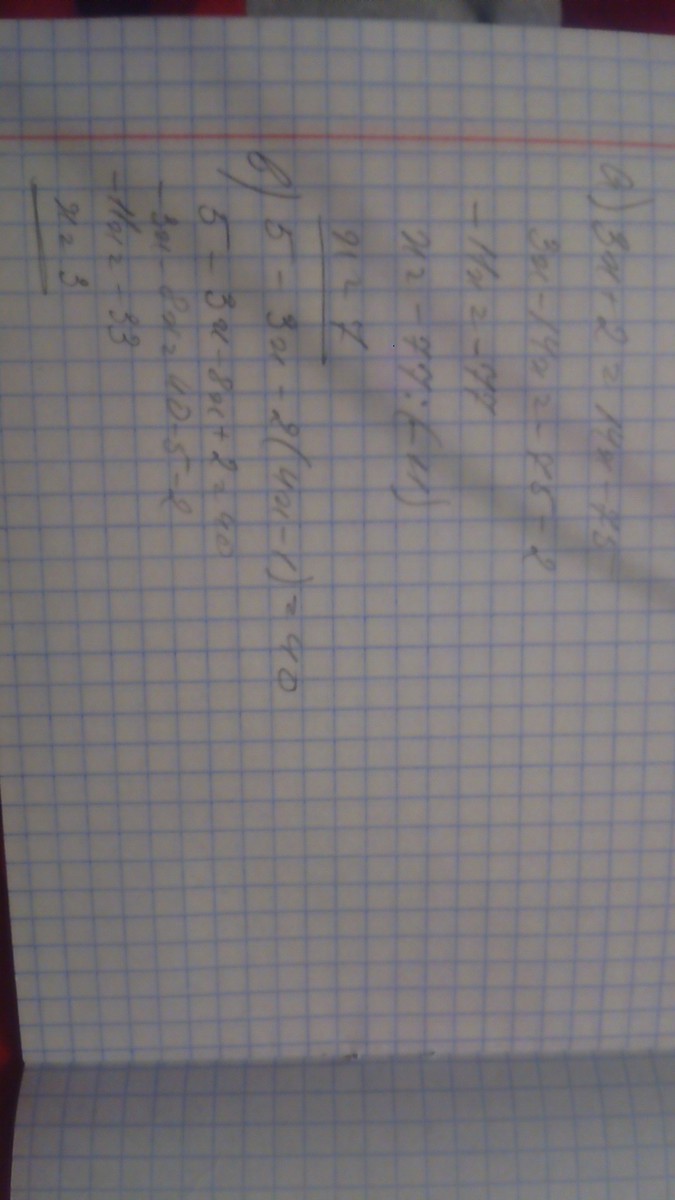 б) 3x + 2 = 14x - 75
3x - 14x = - 75 - 2
- 11x = - 77
x = - 77 : (- 11)
x = 7
в) 5 - 3x - 2(4x - 1) = 40
5 - 3x - 8x + 2 = 40
- 3x - 8x = 40 - 5 - 2
- 11x = - 33
x = 3